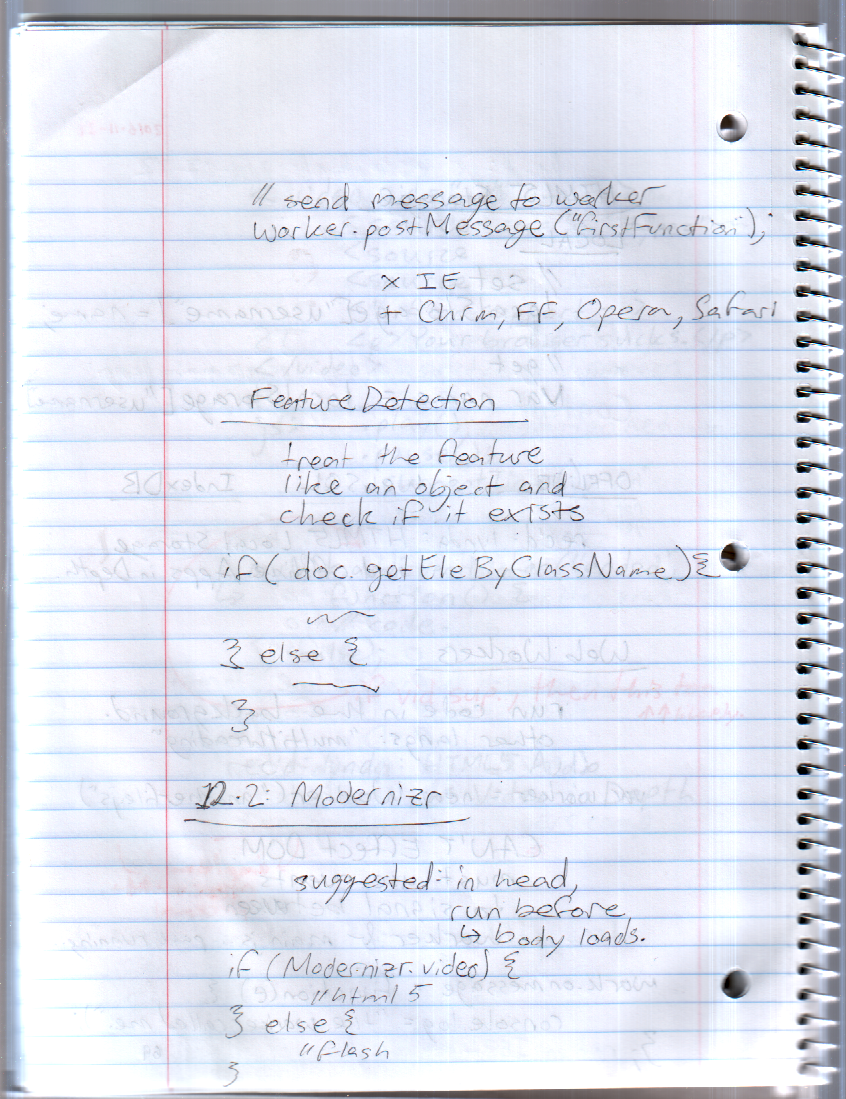 // send message to worker
worker.postMessage("firstFunction");
x IE
+ Chrm, FF, Opera, Safari
Feature Detection
treat the feature
like an object and
check if it exists
if( doc.getEleByClassName){
} else {
}
12.2: Modernizr
suggested: in head,
run before
↳ body loads.
if (Modernizr.video) {
//html5
} else {
//flash
}